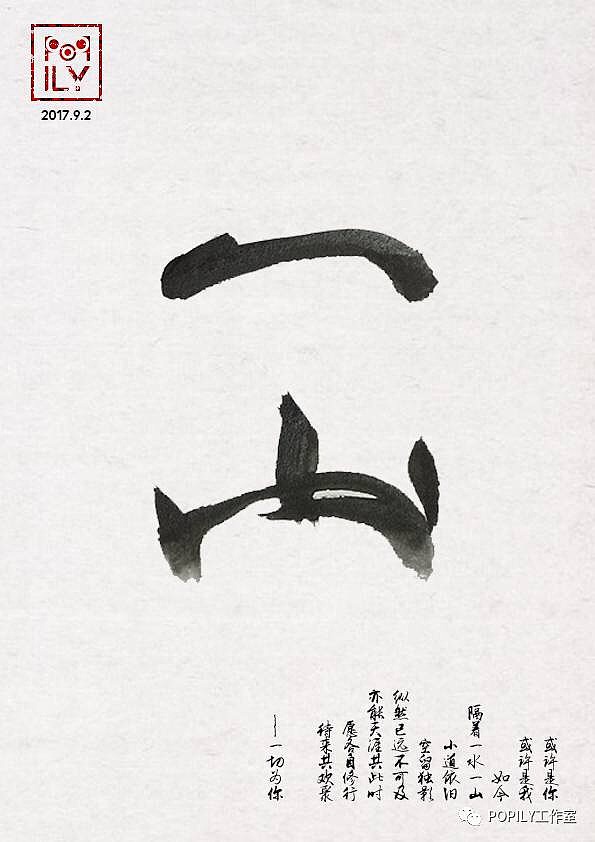 POPILY
2017.9.2
一
山
或许是你
或许是我
如今
隔着一水一山
小道依旧
空留独影
纵然已远不可及
亦能天涯共此时
愿各自修行
待来共欢聚
——一切为你
POPILY工作室